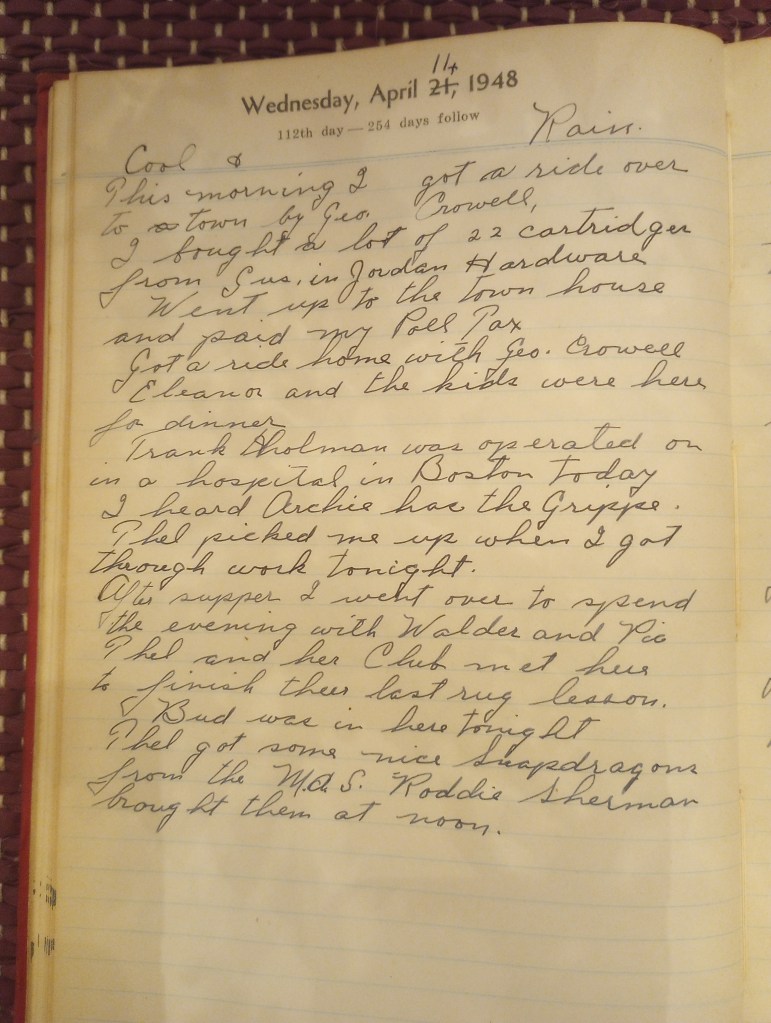 Wednesday, April 21, 14 1948
112th day — 254 days follow
Cool & Rain.
This morning I got a ride over
to town by Geo. Crowell,
I bought a lot of 22 cartridges
from Gus, in Jordan Hardware
Went up to the town house
and paid my Poll Tax
Got a ride home with Geo. Crowell
Eleanor and the kids were here
for dinner
Frank Tholman was operated on
in a hospital in Boston today
I heard Archie has the Grippe.
Phel picked me up when I got
through work tonight.
After supper I went over to spend
the evening with Walder and Pia
Phel and her Club met here
to finish their last rug lesson.
Bud was in here tonight
Phel got some nice Snapdragons
from the M.A.S. Roddie Sherman
brought them at noon.